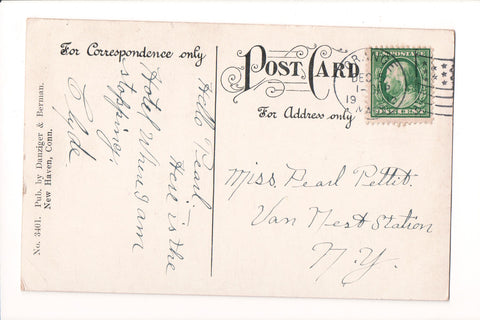 For Correspondence only
Hello Pearl
Here is the
Hotel where I am
stopping.
Clyde
No. 3401. Pub. by Danziger & Berman.
New Haven, Conn.
POST CARD
For Address only
DEC
1-
19
Miss. Pearl Pettit.
Van Nest Station
N.Y.